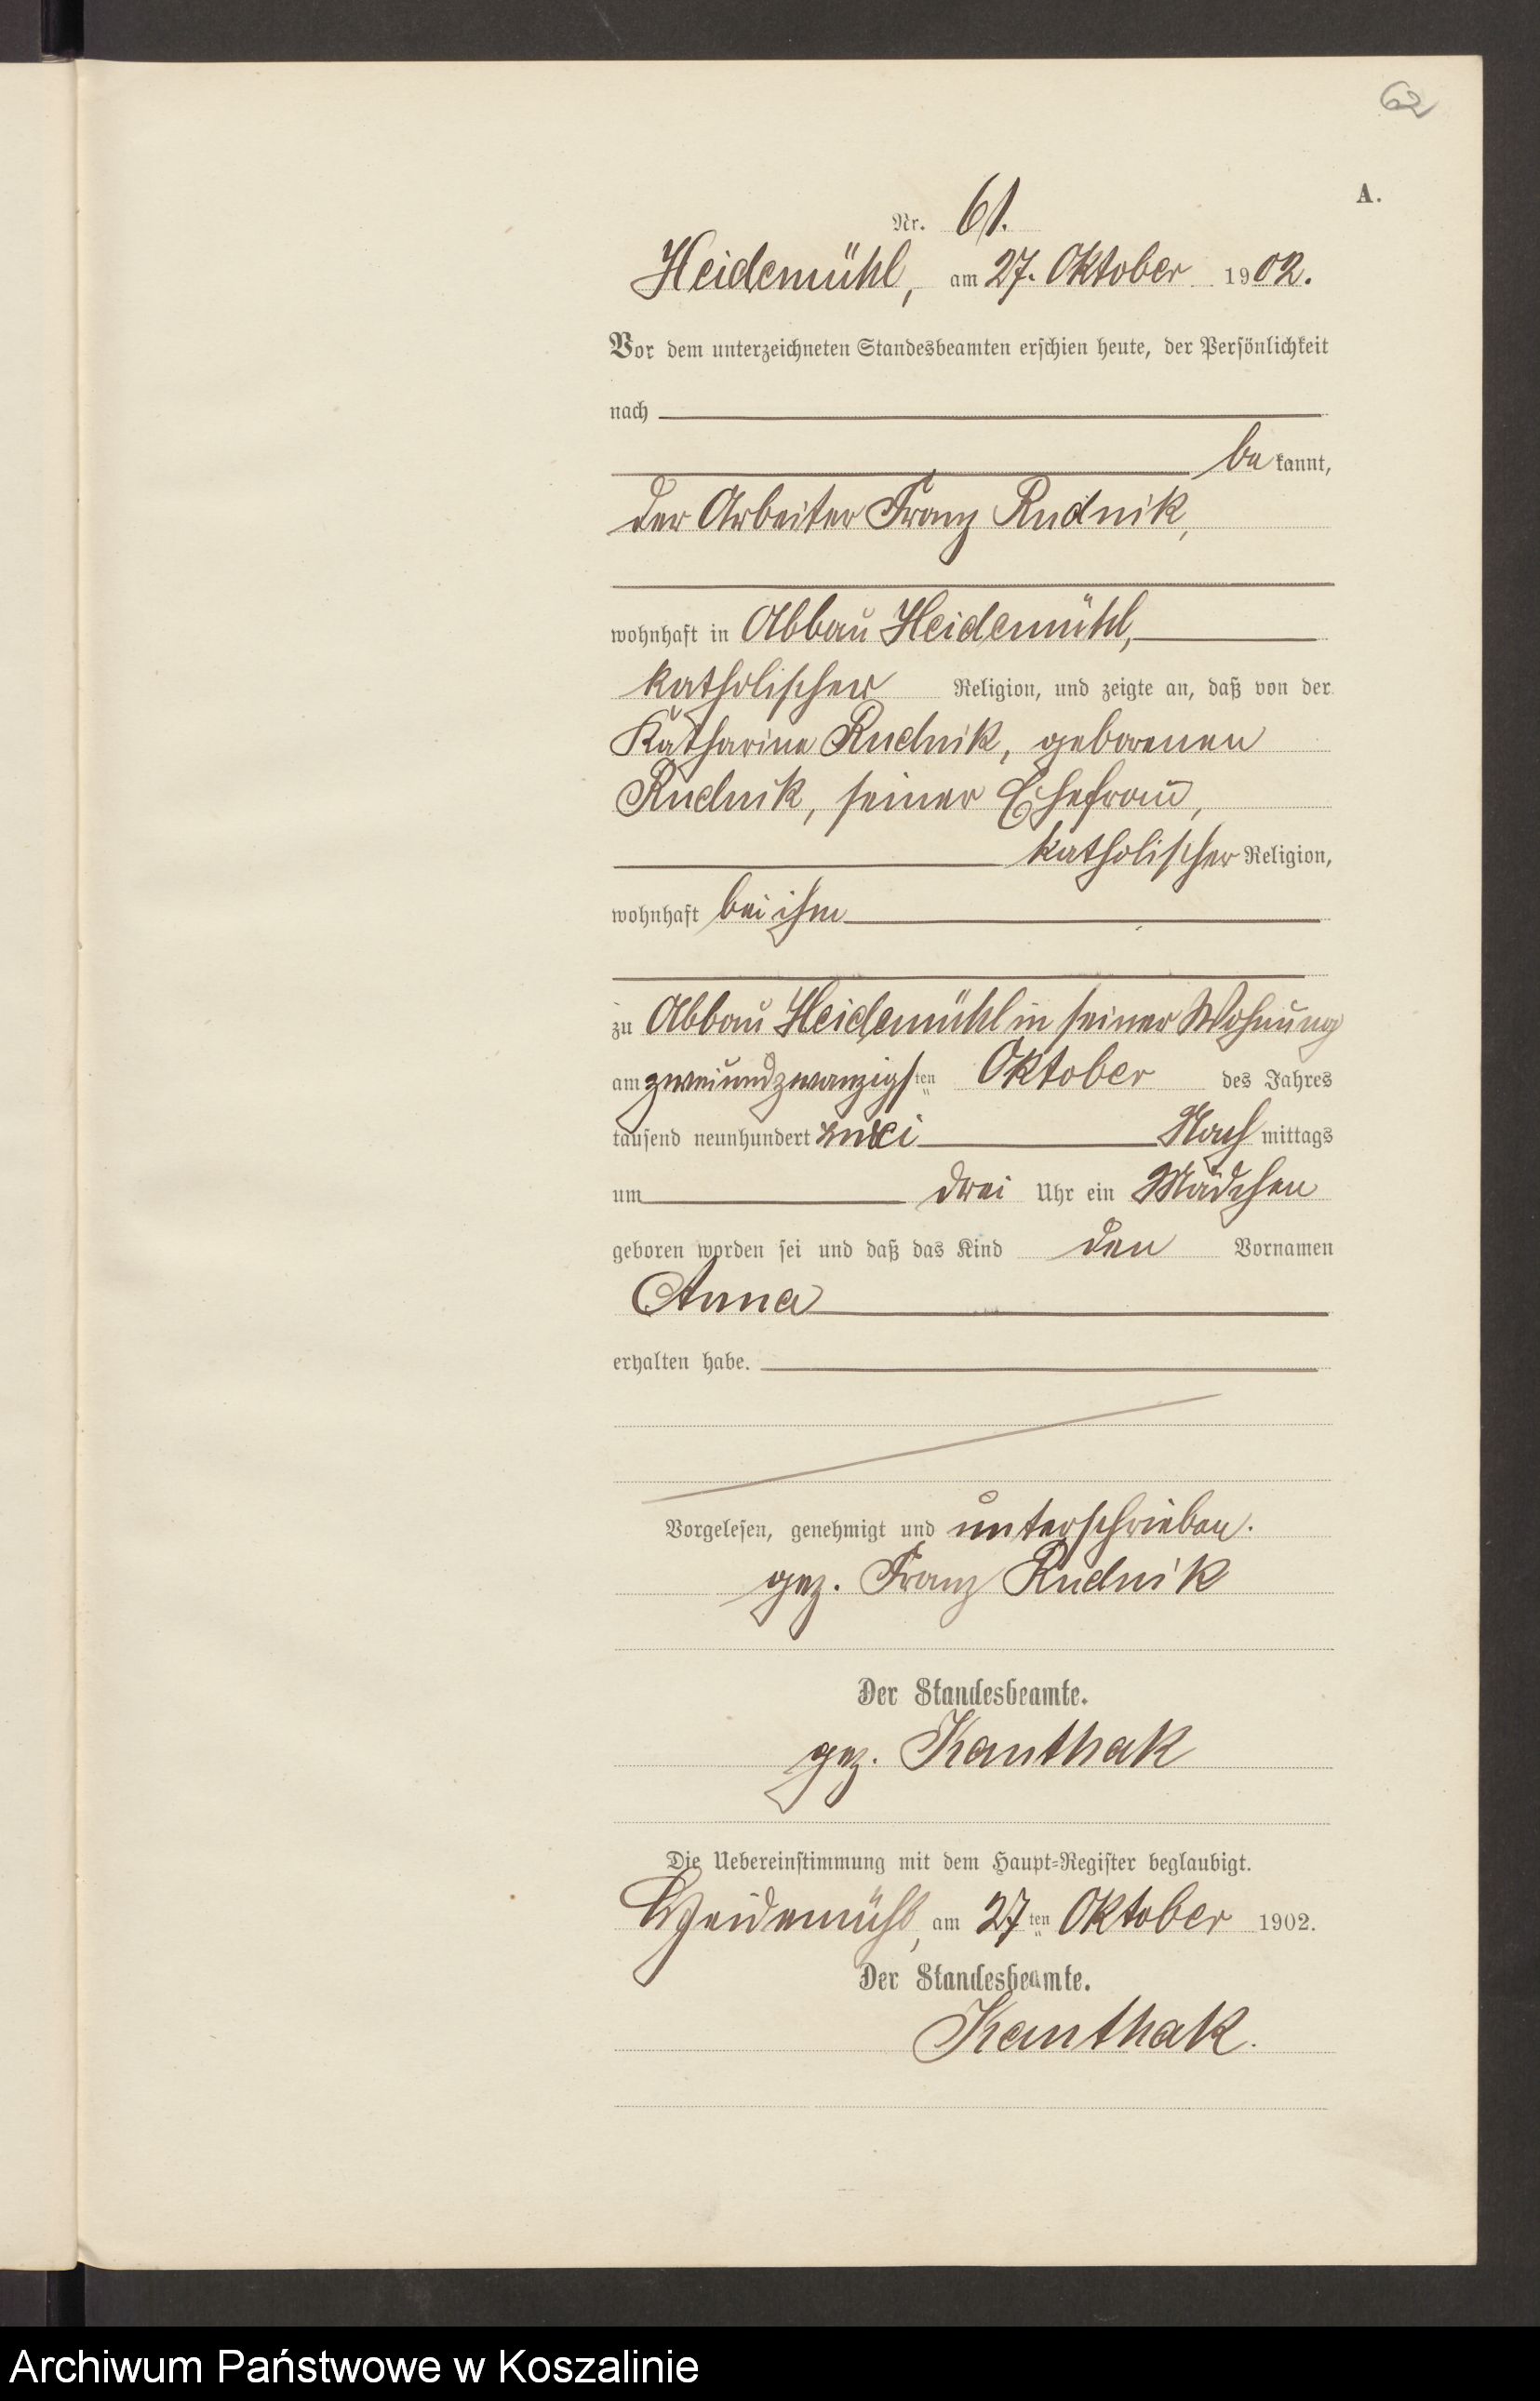 62
A.
Nr. 61.
Heidemühl, am 27. Oktober 1902.
Vor dem unterzeichneten Standesbeamten erschien heute, der Persönlichkeit
nach
be kannt,
der Arbeiter Franz Rudnik,
wohnhaft in Abbau Heidemühl,
katholischer Religion, und zeigte an, daß von der
Katharina Rudnik, geborenen
Rudnik, seiner Ehefrau,
katholischer Religion,
wohnhaft bei ihm
zu Abbau Heidemühl in seiner Wohnung
am zweiundzwanzigsten Oktober des Jahres
tausend neunhundert zwei Nach mittags
um drei Uhr ein Mädchen
geboren worden sei und daß das Kind den Vornamen
Anna
erhalten habe.
Vorgelesen, genehmigt und unterschrieben.
gez. Franz Rudnik
Der Standesbeamte.
gez. Kanthak
Die Uebereinstimmung mit dem Haupt-Register beglaubigt.
Heidemühl, am 27ten Oktober 1902.
Der Standesbeamte.
Kanthak.
Archiwum Państwowe w Koszalinie